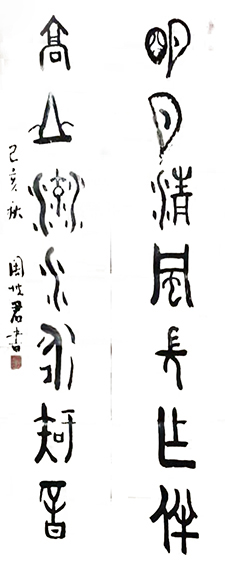 明月清風長作伴
高山流水有知音
己亥秋 周忱君書